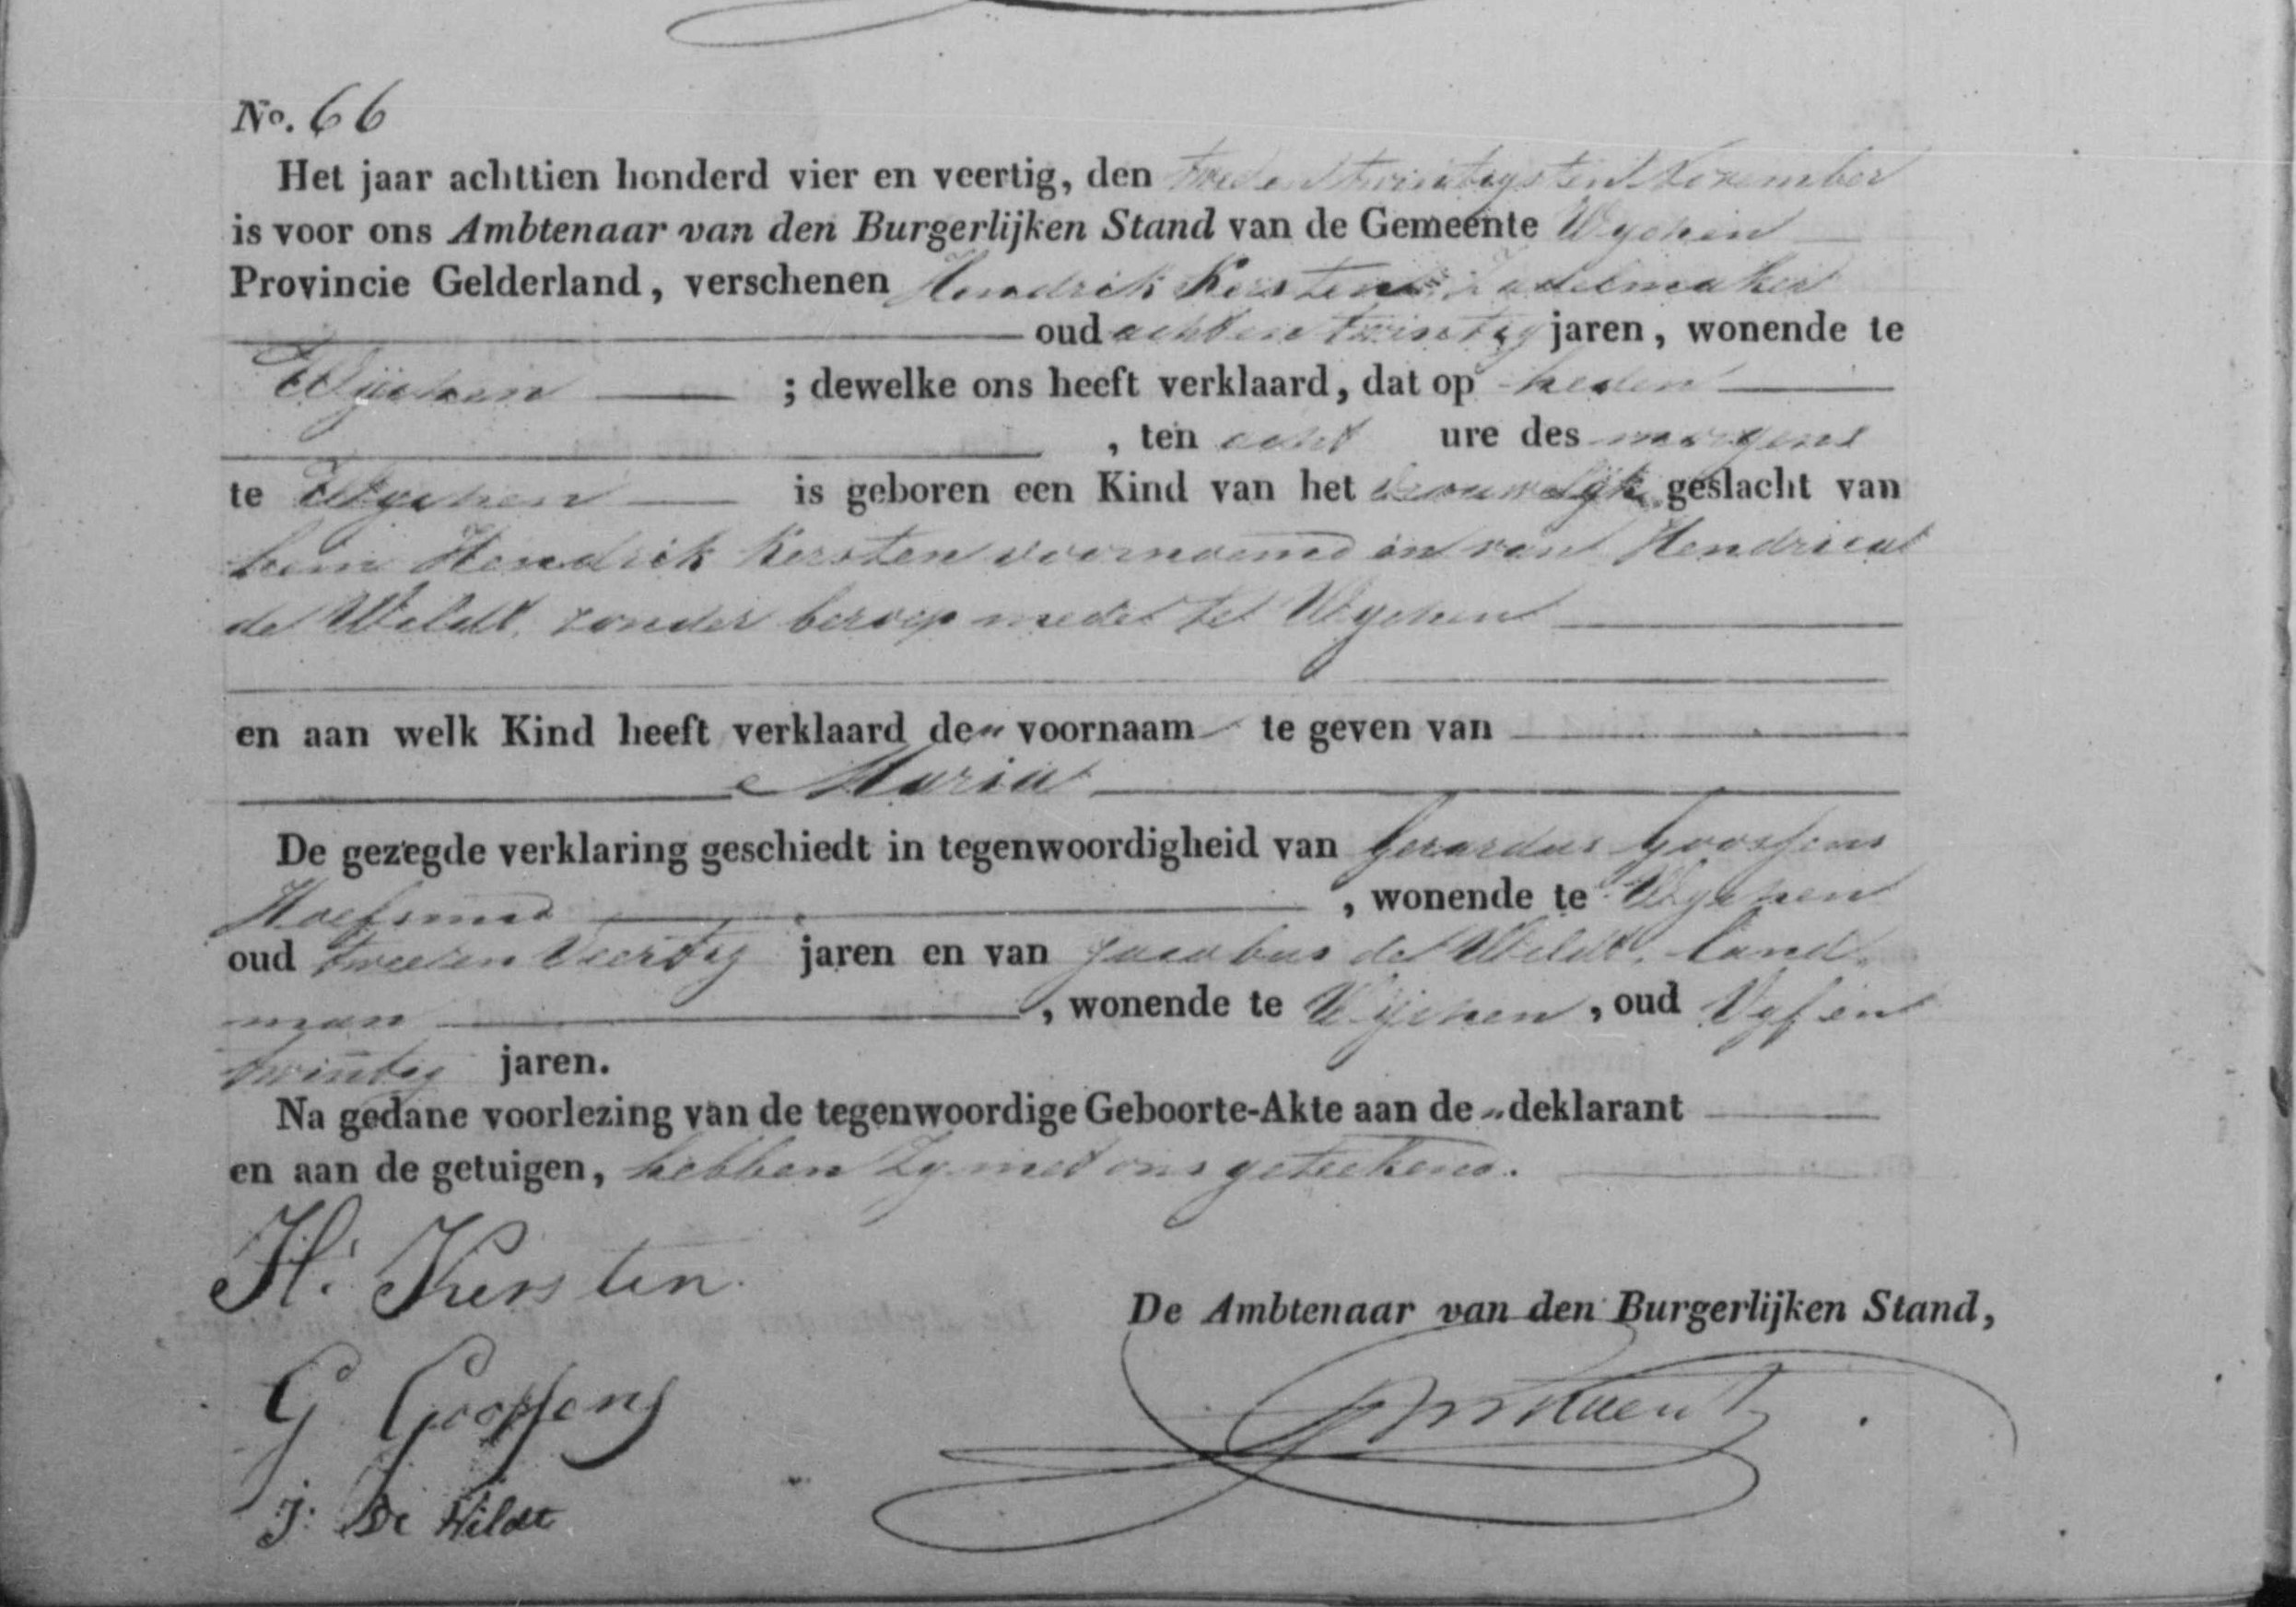 No. 66
Het jaar achttien honderd vier en veertig, den twintigsten November
is voor ons Ambtenaar van den Burgerlijken Stand van de Gemeente Wychen
Provincie Gelderland, verschenen Hendrik Kersten Zadelmaker
oud achtentwintig jaren, wonende te
Wychen ; dewelke ons heeft verklaard, dat op heden
, ten acht ure des morgens
te Wychen is geboren een Kind van het vrouwelyk geslacht van
hem Hendrik Kersten voornoemd en van Hendrica
de Wildt, zonder beroep mede te Wychen
en aan welk Kind heeft verklaard den voornaam te geven van
Maria
De gezegde verklaring geschiedt in tegenwoordigheid van Gerardus Goossens
Hoefsmid , wonende te Wychen
oud tweeenveertig jaren en van Jacobus de Wildt, land
man , wonende te Wychen, oud Vyf en
twintig jaren.
Na gedane voorlezing van de tegenwoordige Geboorte-Akte aan de deklarant
en aan de getuigen, hebben zy met ons geteekend.
H. Kersten
De Ambtenaar van den Burgerlijken Stand,
G Goossens
J. De Wildt